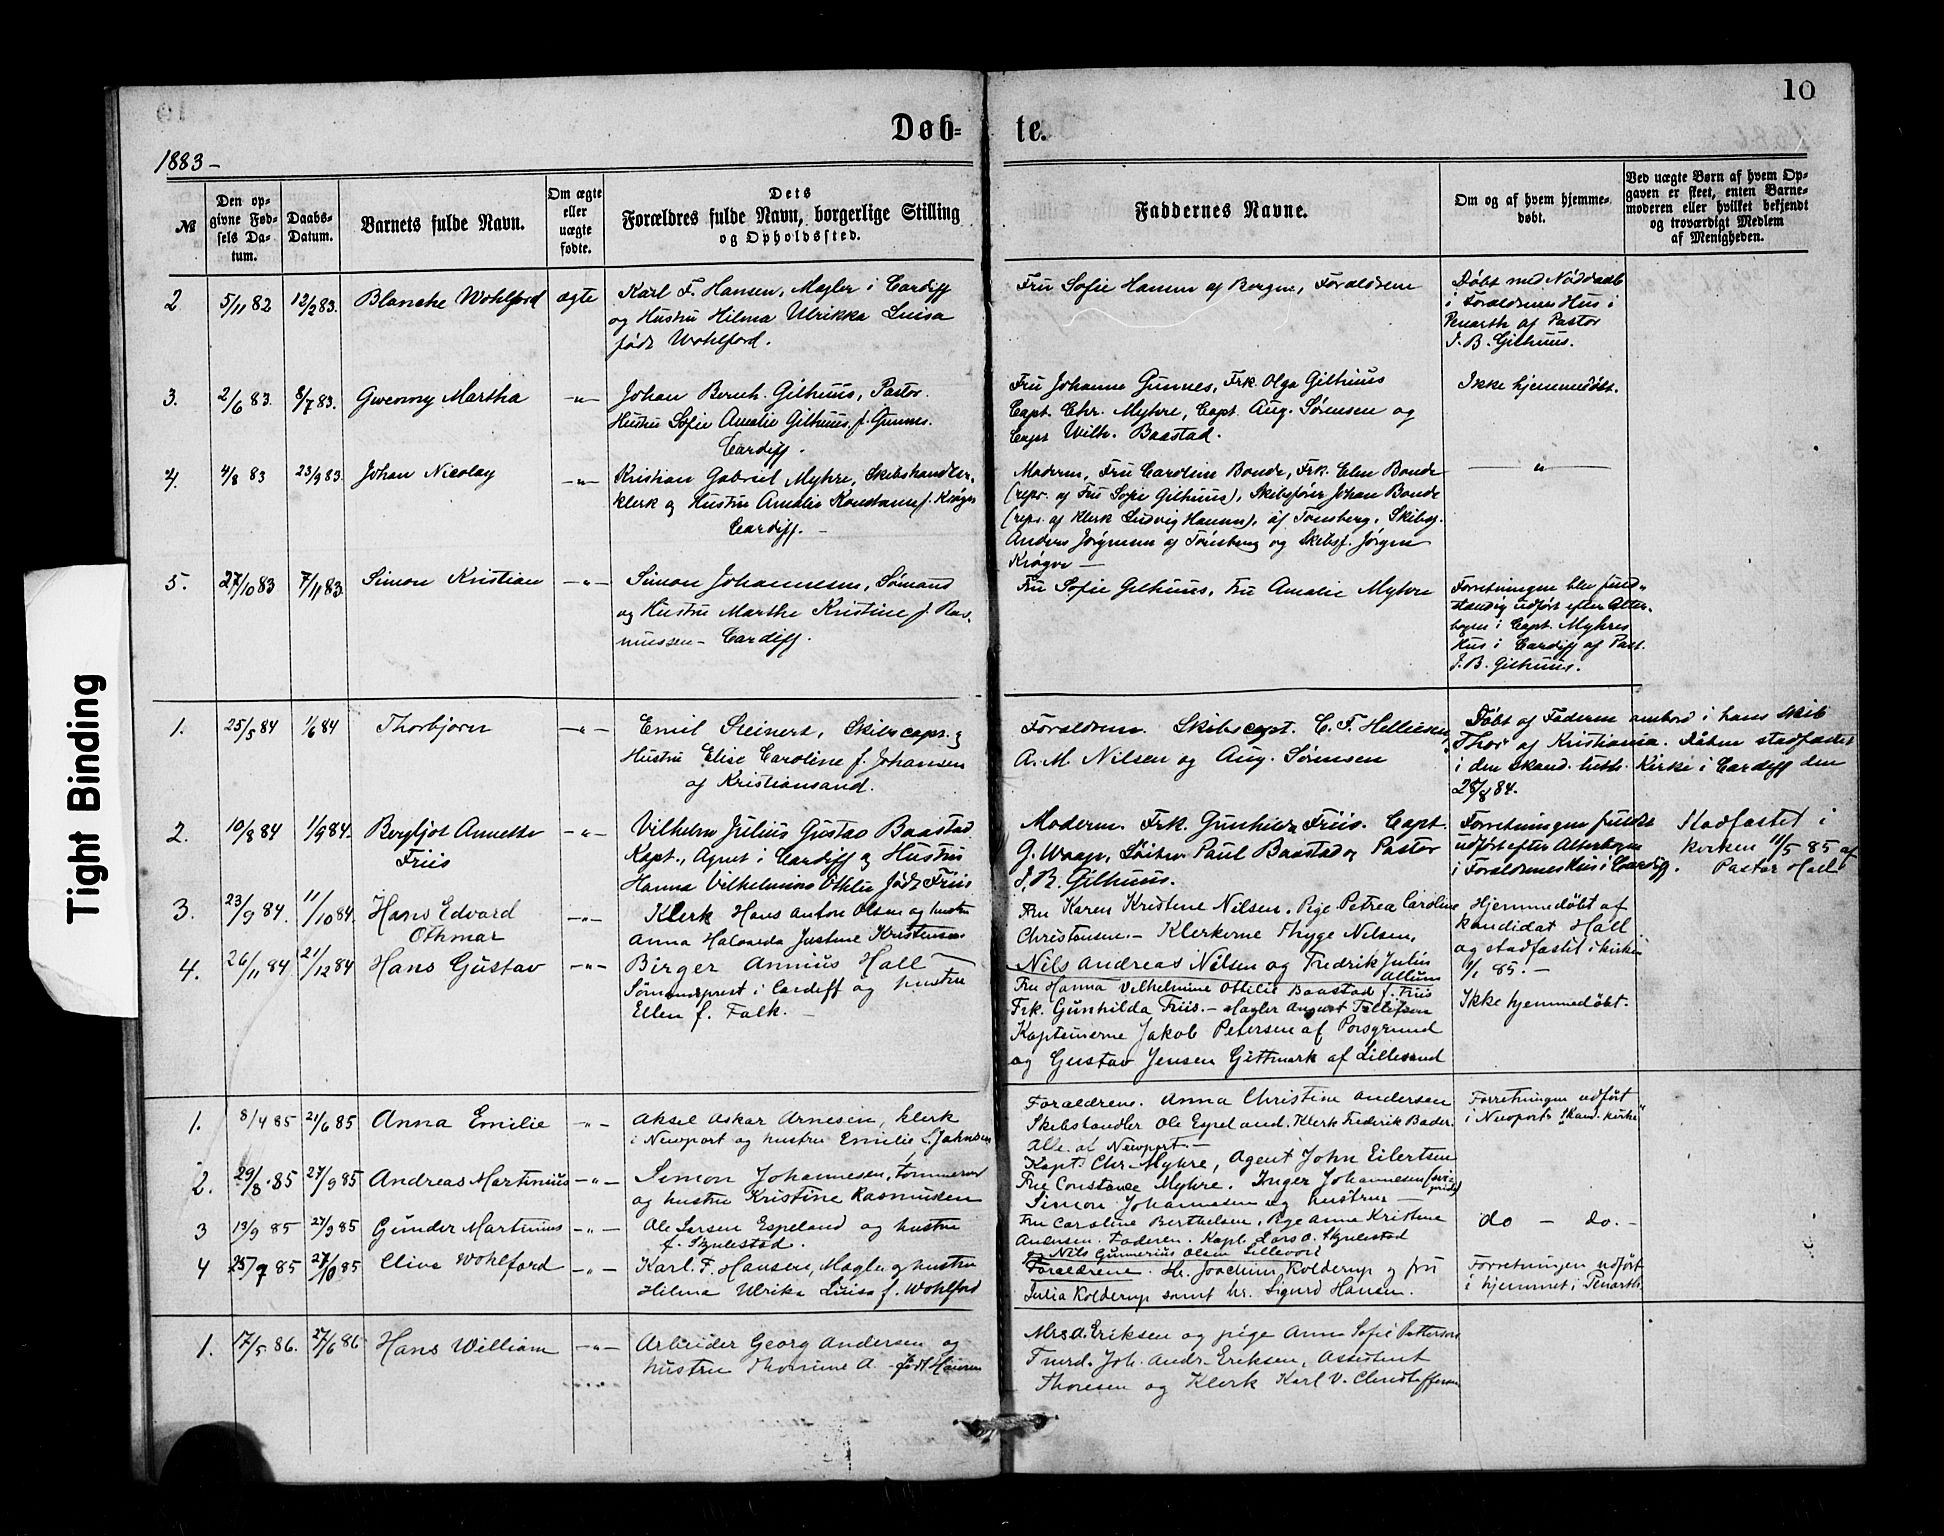 10
Døb-te.
1883-
№
Den op-
givne Fød-
sels Da-
tum.
Daabs-
Datum.
Barnets fulde Navn.
Om ægte
eller
uægte
fødte.
Dets
Forældres fulde Navn, borgerlige Stilling
og Opholdssted.
Faddernes Navne.
Om og af hvem hjemme-
døbt.
Ved uægte Børn af hvem Op-
gaven er skeet, enten Barne-
moderen eller hvilket bekjendt
og troværdigt Medlem
af Menigheden.
2 5/11 82 12/2 83. Blanche Wohlford ægte
Karl F. Hansen, Mægler i Cardiff
og Hustru Hilma Ulrikka Luisa
født Wohlford.
Fru Sofie Hansen af Bergen, Forældrene
Døbt med Nøddaab
i Forældrenes Hus i
Penarth af Pastor
J. B. Gilhuus.
3. 2/6 83. 8/7 83. Gwenny Martha -"-
Johan Bernh. Gilhuus, Pastor.
Hustru Sofie Amalie Gilhuus, f. Gunnes.
Cardiff.
Fru Johanne Gunnes, Frk. Olga Gilhuus
Capt. Chr. Myhre, Capt. Aug. Sørensen og
Capt Wilh. Baastad.
Ikke hjemmedøbt.
4. 4/8 83 23/9 83. Johan Nicolay -"-
Kristian Gabriel Myhre, Skibshandler-
klerk og Hustru Amalie Konstanse f. Krøger
Cardiff. -
Moderen, Fru Caroline Bonde, Frk. Elen Bonde
(repr. af Fru Sofie Gilhuus), Skibsfører Johan Bonde
(repr. af Klerk Ludvig Hansen), af Tønsberg, Skibsf.
Anders Jørgensen af Tønsberg og Skibsf. Jørgen
Krøger -
-"-
5. 27/10 83 7/11 83. Simon Kristian -"-
Simon Johannesen, Sømand
og Hustru Marthe Kristine f. Ras-
mussen- Cardiff.
Fru Sofie Gilhuus, Fru Amalie Myhre
Forretningen blev fuld-
stændig udført efter Alter-
bogen i Capt. Myhres
Hus i Cardiff af Past.
J. B. Gilhuus.
1. 25/5 84 1/6 84 Thorbjørn -"-
Emil Steinert, Skibscapt. og
Hustru Elise Caroline f. Johansen
af Kristiansand.
Forældrene. Skibscapt. C. F. Helliesen,
A. M. Nilsen og Aug. Sørensen
Døbt af Faderen ombord i hans Skib
Thor af Kristiania. Dåben stadfæstet
i den skand. luth. Kirke i Cardiff den
28/8 84.
2. 10/8 84 1/9 84. Bergljot Annette
Friis -"-
Vilhelm Julius Gustav Baastad
Kapt., Agent i Cardiff og Hustru
Hanna Vilhelmine Othilie født Friis
Moderen. Frk. Gunhilda Friis. Capt.
G. Waap, Paul Baastad og Pastor
J. B. Gilhuus.
Forretningen fuldt
udført efter Alterbogen
i Forældrenes Hus i Cardiff.
Stadfæstet i
kirken 11/5 85 af
Pastor Hall
3. 23/9 84. 11/10 84. Hans Edvard
Othmar -"-
Klerk Hans Anton Olsen og hustru
Anna Halvarda Justine Kristensen.
Fru Karen Kristine Nilsen, Pige Petrea Caroline
Christensen.- Klerkerne Thyge Nilsen,
Nils Andreas Nilsen og Fredrik Julius
Allum
Hjemmedøbt af
kandidat Hall
og stadfæstet i kirken
1/1 85. -
4. 26/11 84 21/12 84 Hans Gustav -"-
Birger Annius Hall
Sømandsprest i Cardiff og hustru
Ellen f. Falk. -
Fru Hanna Vilhelmine Ottilie Baastad f. Friis
Frk. Gunhilda Friis. - Mægler August Tellefsen
Kapteinerne Jakob Petersen af Porsgrund
og Gustav Jensen Gittmark af Lillesand
Ikke hjemmedøbt.
1. 8/4 85 21/6 85 Anna Emilie -"-
Aksel Oskar Arnesen, klerk
i Newport og hustru Emilie f. Jahnsen
Forældrene. Anna Christine Andersen
Skibshandler Ole Espeland. Klerk Frederik Bader.
Alle af Newport. -
Forretningen udført
i Newports skand. kirke
2. 29/8 85 27/9 85 Andreas Martinius -"-
Simon Johannesen, tømmermd
og hustru Kristine Rasmussen
Kapt. Chr. Myhre, Agent John Eilertsen
Fru Constance Myhre. Inger Johannesen
Simon Johannesen og hustru -
3 13/9 85 27/9 85 Gunder Martinius -"-
Ole Larsen Espeland og hustru
f. Skulestad.
Fru Caroline Berthelsen, Pige Anna Kristine
Andersen. Faderen. Kapt. Lars O. Skulestad
og Nils Gunnerius Olsen Lillevori
do - do. -
4 25/7 85 27/10 85 Clive Wohlford -"-
Karl. F. Hansen, Mægler og hustru
Hilma Ulrika Luisa f. Wohlford
Forældrene. Hr. Joachim Kolderup og fru
Julia Kolderup samt hr. Sigurd Hansen.
Forretningen udført
i hjemmet i Penarth.
1. 17/5 86. 27/6 86 Hans William -"-
Arbeider Georg Andersen og
hustru Thorine A. født Hansen
Mrs A. Eriksen og pige Anna Sofie Pettersen
Tmrd. Joh. Andr. Eriksen, Assistent
Thoresen og Klerk Karl V. Christoffersen
Tight Binding